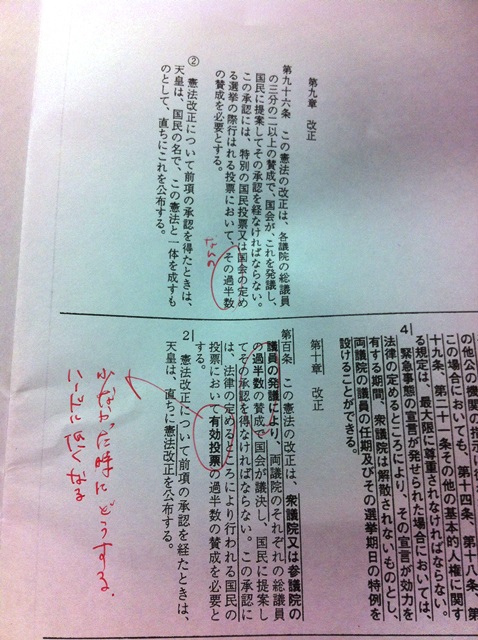 第九章 改正
第九十六条 この憲法の改正は、各議院の総議員
の三分の二以上の賛成で、国会が、これを発議し、
国民に提案してその承認を経なければならない。
この承認には、特別の国民投票又は国会の定め
る選挙の際行はれる投票において、その過半数
の賛成を必要とする。
なんの
② 憲法改正について前項の承認を経たときは、
天皇は、国民の名で、この憲法と一体を成すも
のとして、直ちにこれを公布する。
の他公の機関の指示に
この場合においても、第十四条、第十八条、第
十九条、第二十一条その他の基本的人権に関す
る規定は、最大限に尊重されなければならない。
4 緊急事態の宣言が発せられた場合においては、
法律の定めるところにより、その宣言が効力を
有する期間、衆議院は解散されないものとし、
両議院の議員の任期及びその選挙期日の特例を
設けることができる。
第十章 改正
第百条 この憲法の改正は、衆議院又は参議院の
議員の発議により、両議院のそれぞれの総議員
の過半数の賛成で国会が議決し、国民に提案し
てその承認を得なければならない。この承認に
は、法律の定めるところにより行われる国民の
投票において有効投票の過半数の賛成を必要と
する。
2 憲法改正について前項の承認を経たときは、
天皇は、直ちに憲法改正を公布する。
少なかった時にどうする。